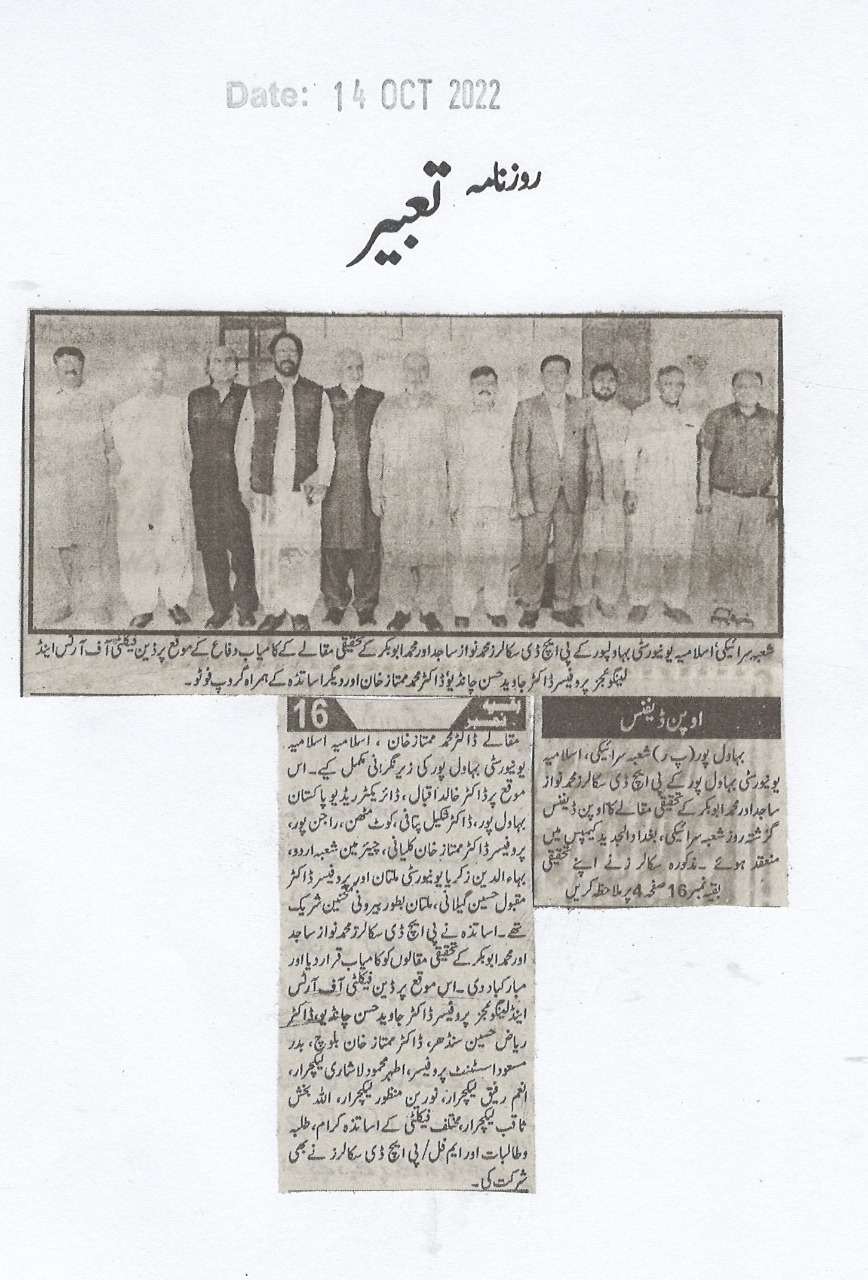 Date: 14 OCT 2022
روزنامہ تعبیر
شعبہ سرائیکی اسلامیہ یونیورسٹی بہاولپور کے پی ایچ ڈی سکالرز محمد نواز ساجد اور محمد ابوبکر کے تحقیقی مقالے کے کامیاب دفاع کے موقع پر ڈین فیکلٹی آف آرٹس اینڈ
لینگوئجز پروفیسر ڈاکٹر جاوید حسن چانڈیو، ڈاکٹر محمد ممتاز خان اور دیگر اساتذہ کے ہمراہ گروپ فوٹو۔
اوپن ڈیفنس
بہاول پور(پ ر) شعبہ سرائیکی، اسلامیہ
یونیورسٹی بہاول پور کے پی ایچ ڈی سکالرز محمد نواز
ساجد اور محمد ابوبکر کے تحقیقی مقالے کا اوپن ڈیفنس
گزشتہ روز شعبہ سرائیکی، بغداد الجدید کیمپس میں
منعقد ہوئے ۔ مذکورہ سکالرز نے اپنے تحقیقی
بقیہ نمبر 16 صفحہ 4 پر ملاحظہ کریں
بقیہ نمبر 16
مقالے ڈاکٹر محمد ممتاز خان ، اسلامیہ اسلامیہ
یونیورسٹی بہاول پور کی زیر نگرانی مکمل کیے۔ اس
موقع پر ڈاکٹر خالد اقبال، ڈائریکٹر ریڈیو پاکستان
بہاول پور، ڈاکٹر شکیل پتافی، کوٹ مٹھن، راجن پور،
پروفیسر ڈاکٹر ممتاز خان کلیانی، چیئرمین شعبہ اردو،
بہاء الدین زکریا یونیورسٹی ملتان اور پروفیسر ڈاکٹر
مقبول حسین گیلانی، ملتان بطور بیرونی ممتحنین شریک
تھے۔ اساتذہ نے پی ایچ ڈی سکالرز محمد نواز ساجد
اور محمد ابوبکر کے تحقیقی مقالوں کو کامیاب قرار دیا اور
مبارکباد دی۔ اس موقع پر ڈین فیکلٹی آف آرٹس
اینڈ لینگوئجز پروفیسر ڈاکٹر جاوید حسن چانڈیو، ڈاکٹر
ریاض حسین سندھڑ، ڈاکٹر ممتاز خان بلوچ، بدر
مسعود اسسٹنٹ پروفیسر، اطہر محمود لاشاری لیکچرار،
انعم رفیق لیکچرار، نورین منظور لیکچرار، اللہ بخش
ثاقب لیکچرار، مختلف فیکلٹی کے اساتذہ کرام، طلبہ
و طالبات اور ایم فل/ پی ایچ ڈی سکالرز نے بھی
شرکت کی۔